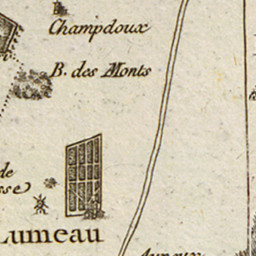 Champdoux
B. des Monts
de
sse
Lumeau